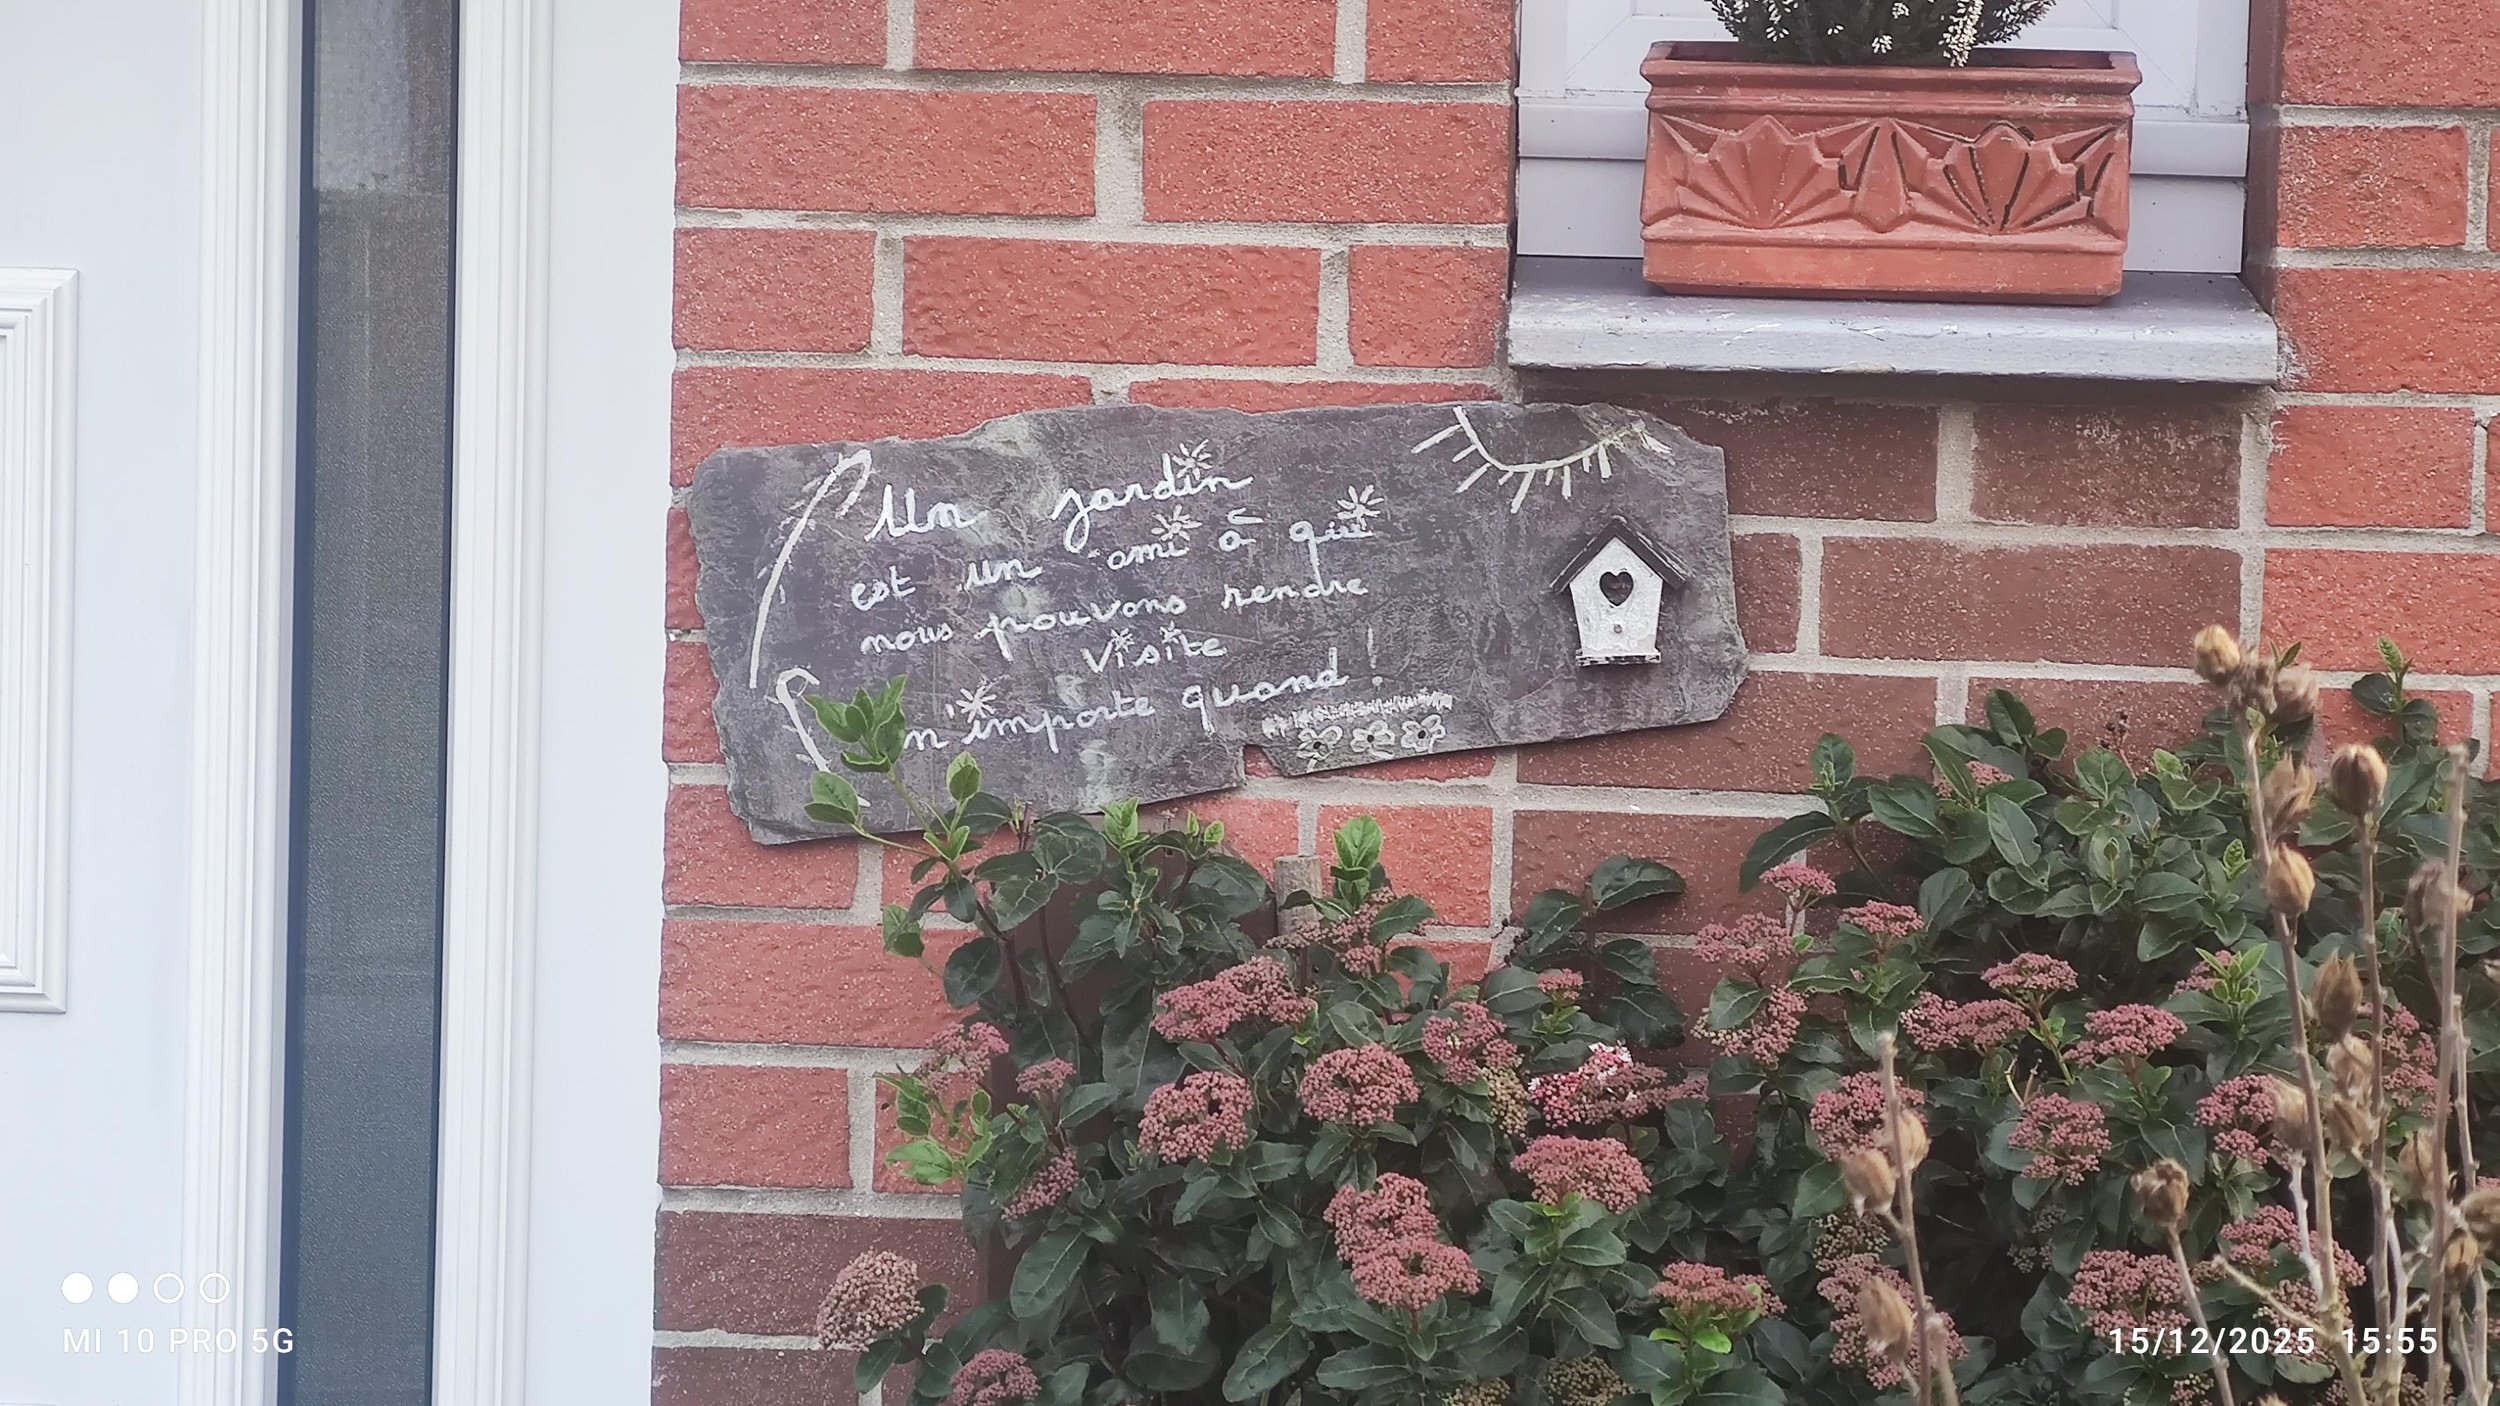 Un jardin
est un ami à qui
nous pouvons rendre
visite
n'importe quand !
MI 10 PRO 5G
15/12/2025 15:55